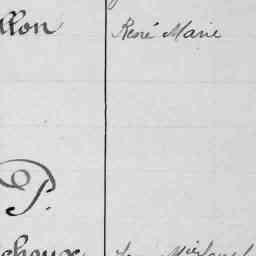 llon René Marie
P.
choux